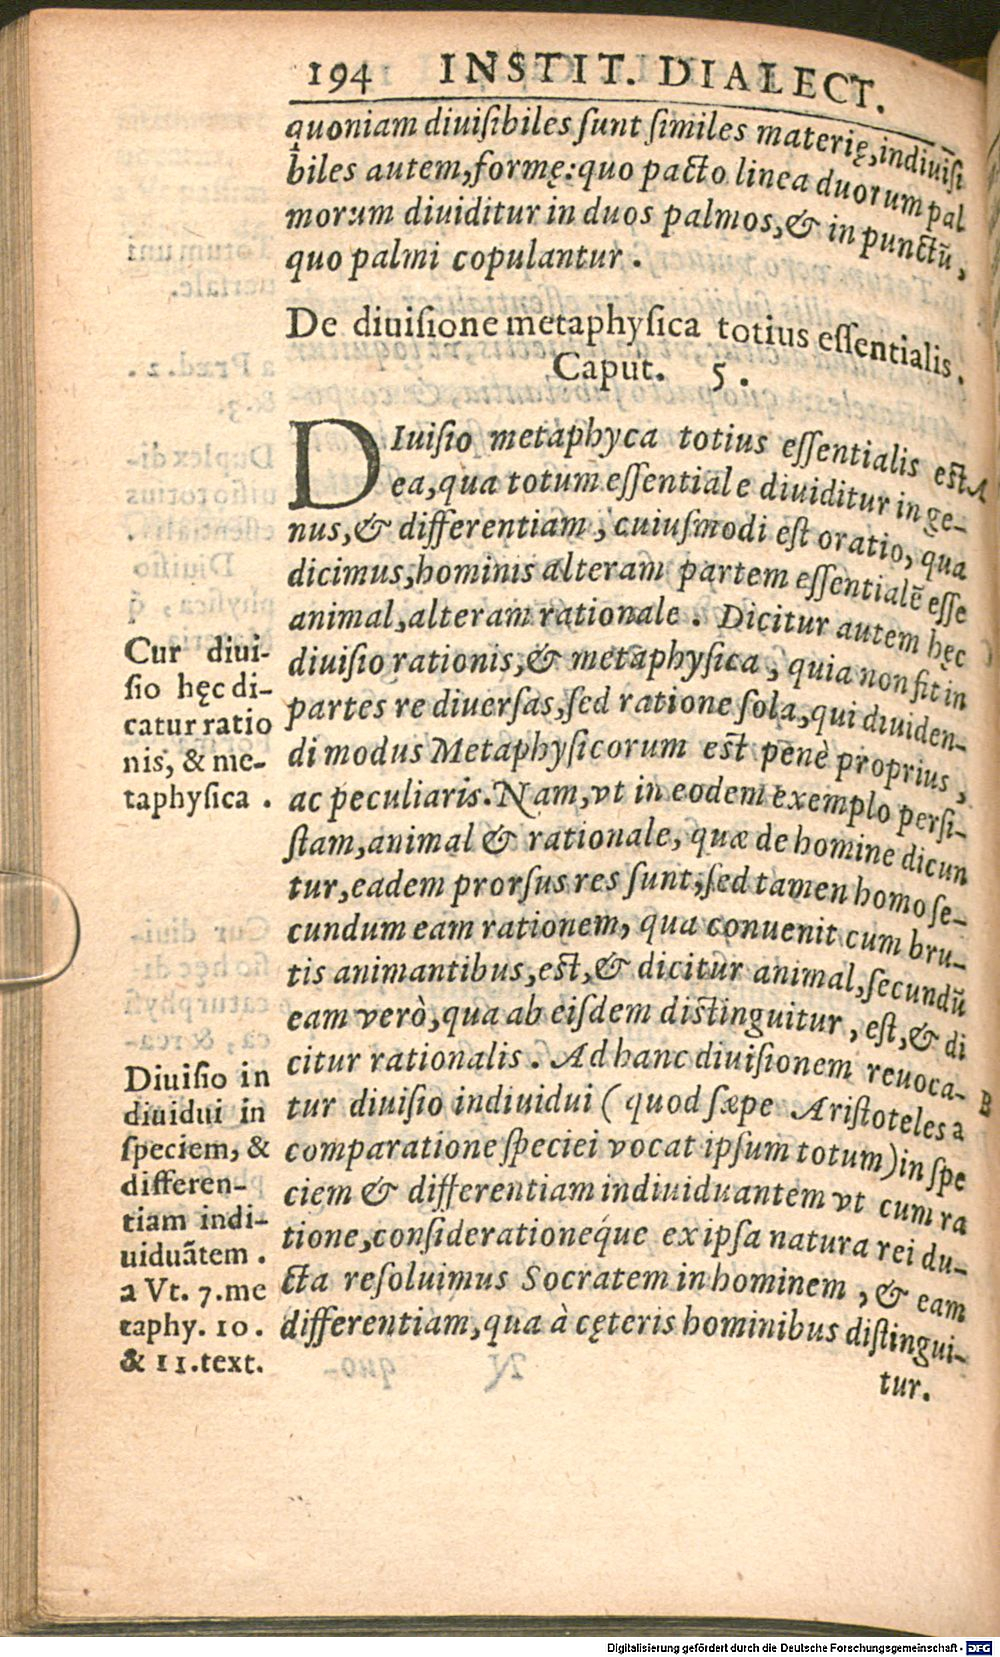 194 INSTIT. DIALECT.
quoniam diuiſibiles ſunt ſimiles materię, indiuiſi
biles autem, formę: quo pacto linea duorum pal
morum diuiditur in duos palmos, & in punctū,
quo palmi copulantur.
De diuiſione metaphyſica totius eſſentialis.
Caput. 5.
DIuiſio metaphyca totius eſſentialis est A
ea, qua totum eſſentiale diuiditur in ge-
nus, & differentiam, cuiuſmodi eſt oratio, qua
dicimus, hominis alteram partem eſſentialē eſſe
animal, alteram rationale. Dicitur autem hęc
diuiſio rationis, & metaphyſica, quia non fit in
partes re diuerſas, ſed ratione ſola, qui diuiden-
di modus Metaphyſicorum eſt penè proprius,
ac peculiaris. Nam, vt in eodem exemplo perſi-
ſtam, animal & rationale, quæ de homine dicun
tur, eadem prorſus res ſunt, ſed tamen homo ſe-
cundum eam rationem, qua conuenit cum bru-
tis animantibus, eſt, & dicitur animal, ſecundū
eam verò, qua ab eiſdem diſtinguitur, eſt, & di
citur rationalis. Ad hanc diuiſionem reuoca- B
tur diuiſio indiuidui (quod ſæpe Ariſtoteles a
comparatione ſpeciei vocat ipſum totum) in ſpe
ciem & differentiam indiuiduantem vt cum ra
tione, conſiderationeque ex ipſa natura rei du-
cta reſoluimus Socratem in hominem, & eam
differentiam, qua à cęteris hominibus diſtingui-
tur.
Cur diui-
ſio hęc di-
catur ratio
nis, & me-
taphyſica.
Diuiſio in
diuidui in
ſpeciem, &
differen-
tiam indi-
uiduātem.
a Vt. 7. me
taphy. 10.
& 11. text.
Digitalisierung gefördert durch die Deutsche Forschungsgemeinschaft - DFG